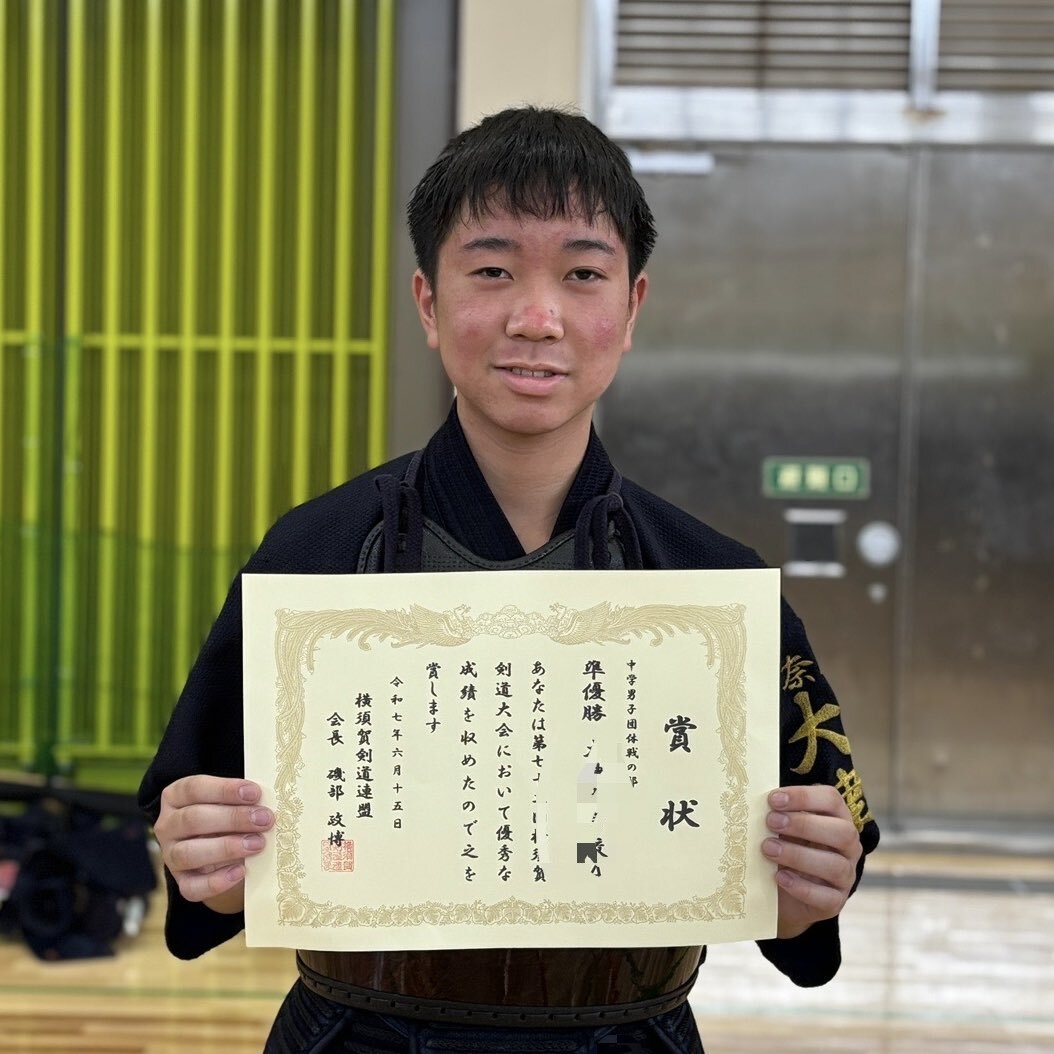 賞状
中学男子団体戦の部
準優勝
あなたは第七十
剣道大会において優秀な
成績を収めたので之を
賞します
令和七年六月十五日
横須賀剣道連盟
会長 磯部政博
大
避難口